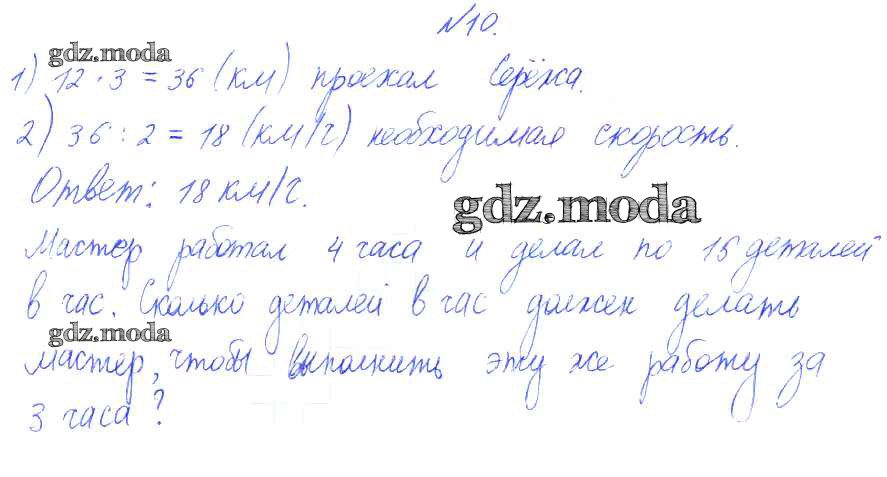 №10.
gdz.moda
1) 12 · 3 = 36 (км) проехал Серёжа.
2) 36 : 2 = 18 (км/ч) необходимая скорость.
Ответ: 18 км/ч.
gdz.moda
Мастер работал 4 часа и делал по 15 деталей
в час. Сколько деталей в час должен делать
gdz.moda
мастер, чтобы выполнить эту же работу за
3 часа?